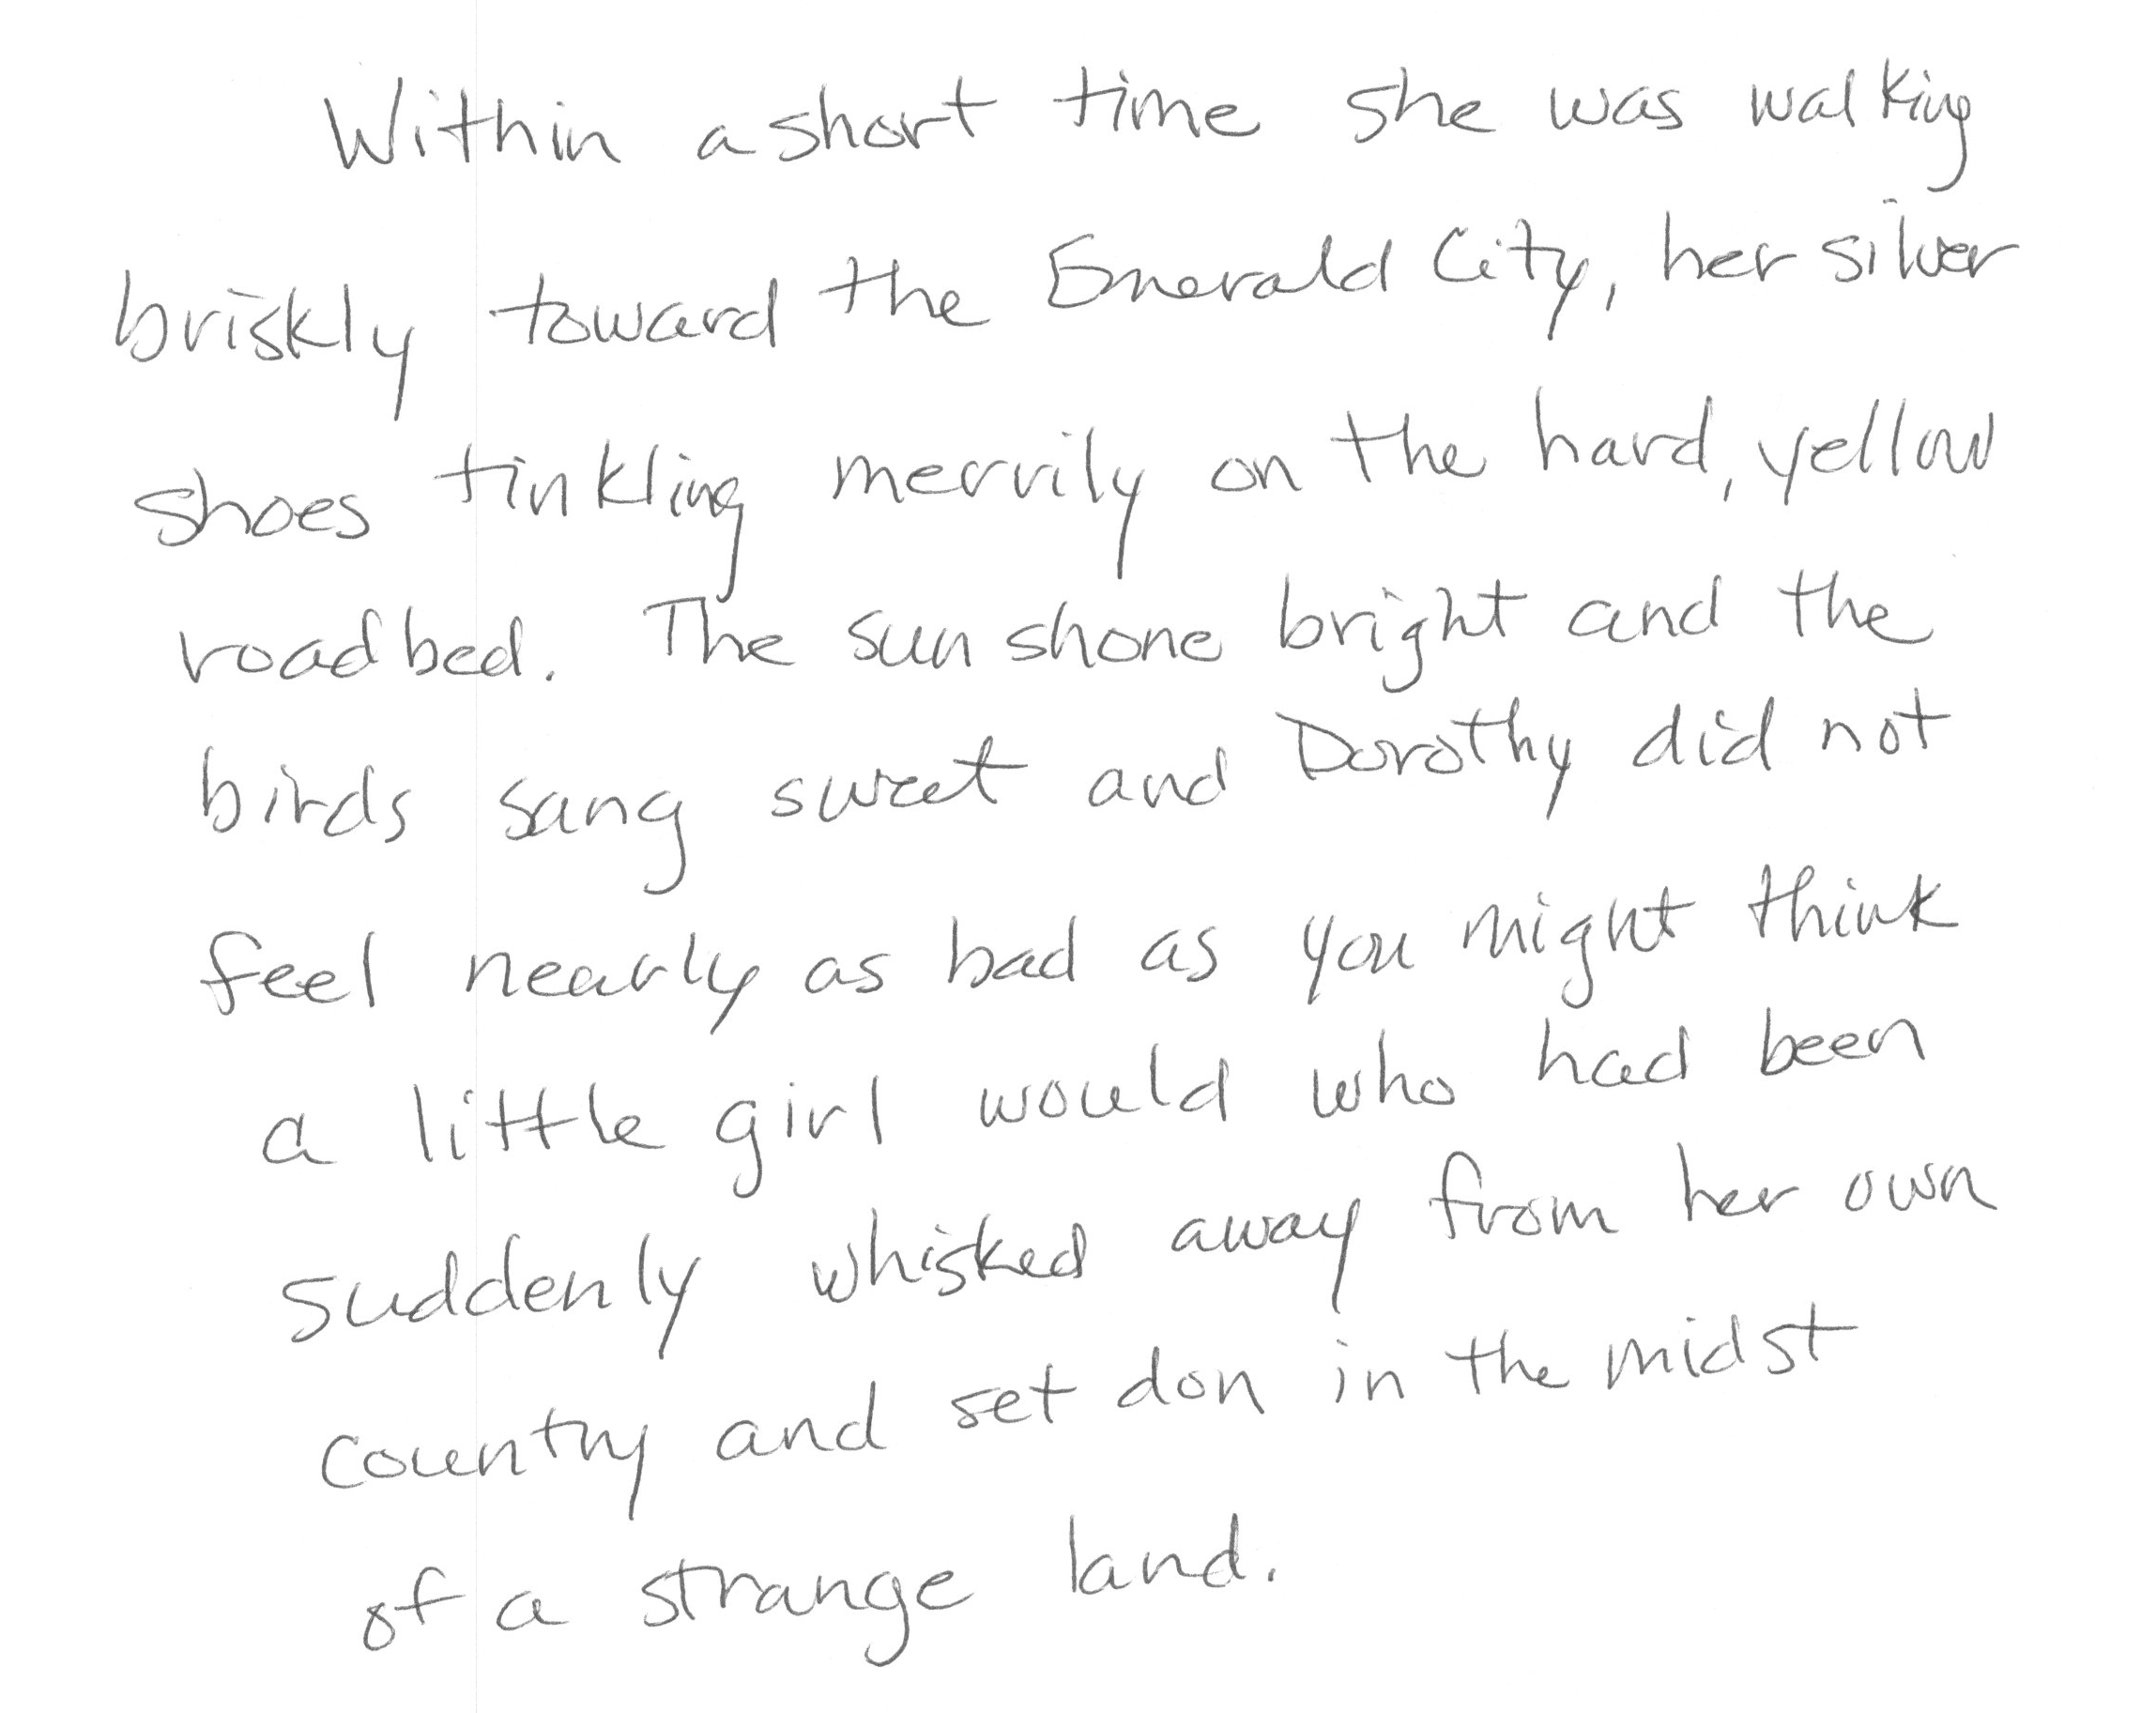 Within a short time she was walking
briskly toward the Emerald City, her silver
shoes tinkling merrily on the hard, yellow
roadbed. The sun shone bright and the
birds sang sweet and Dorothy did not
feel nearly as bad as you might think
a little girl would who had been
suddenly whisked away from her own
country and set don in the midst
of a strange land.